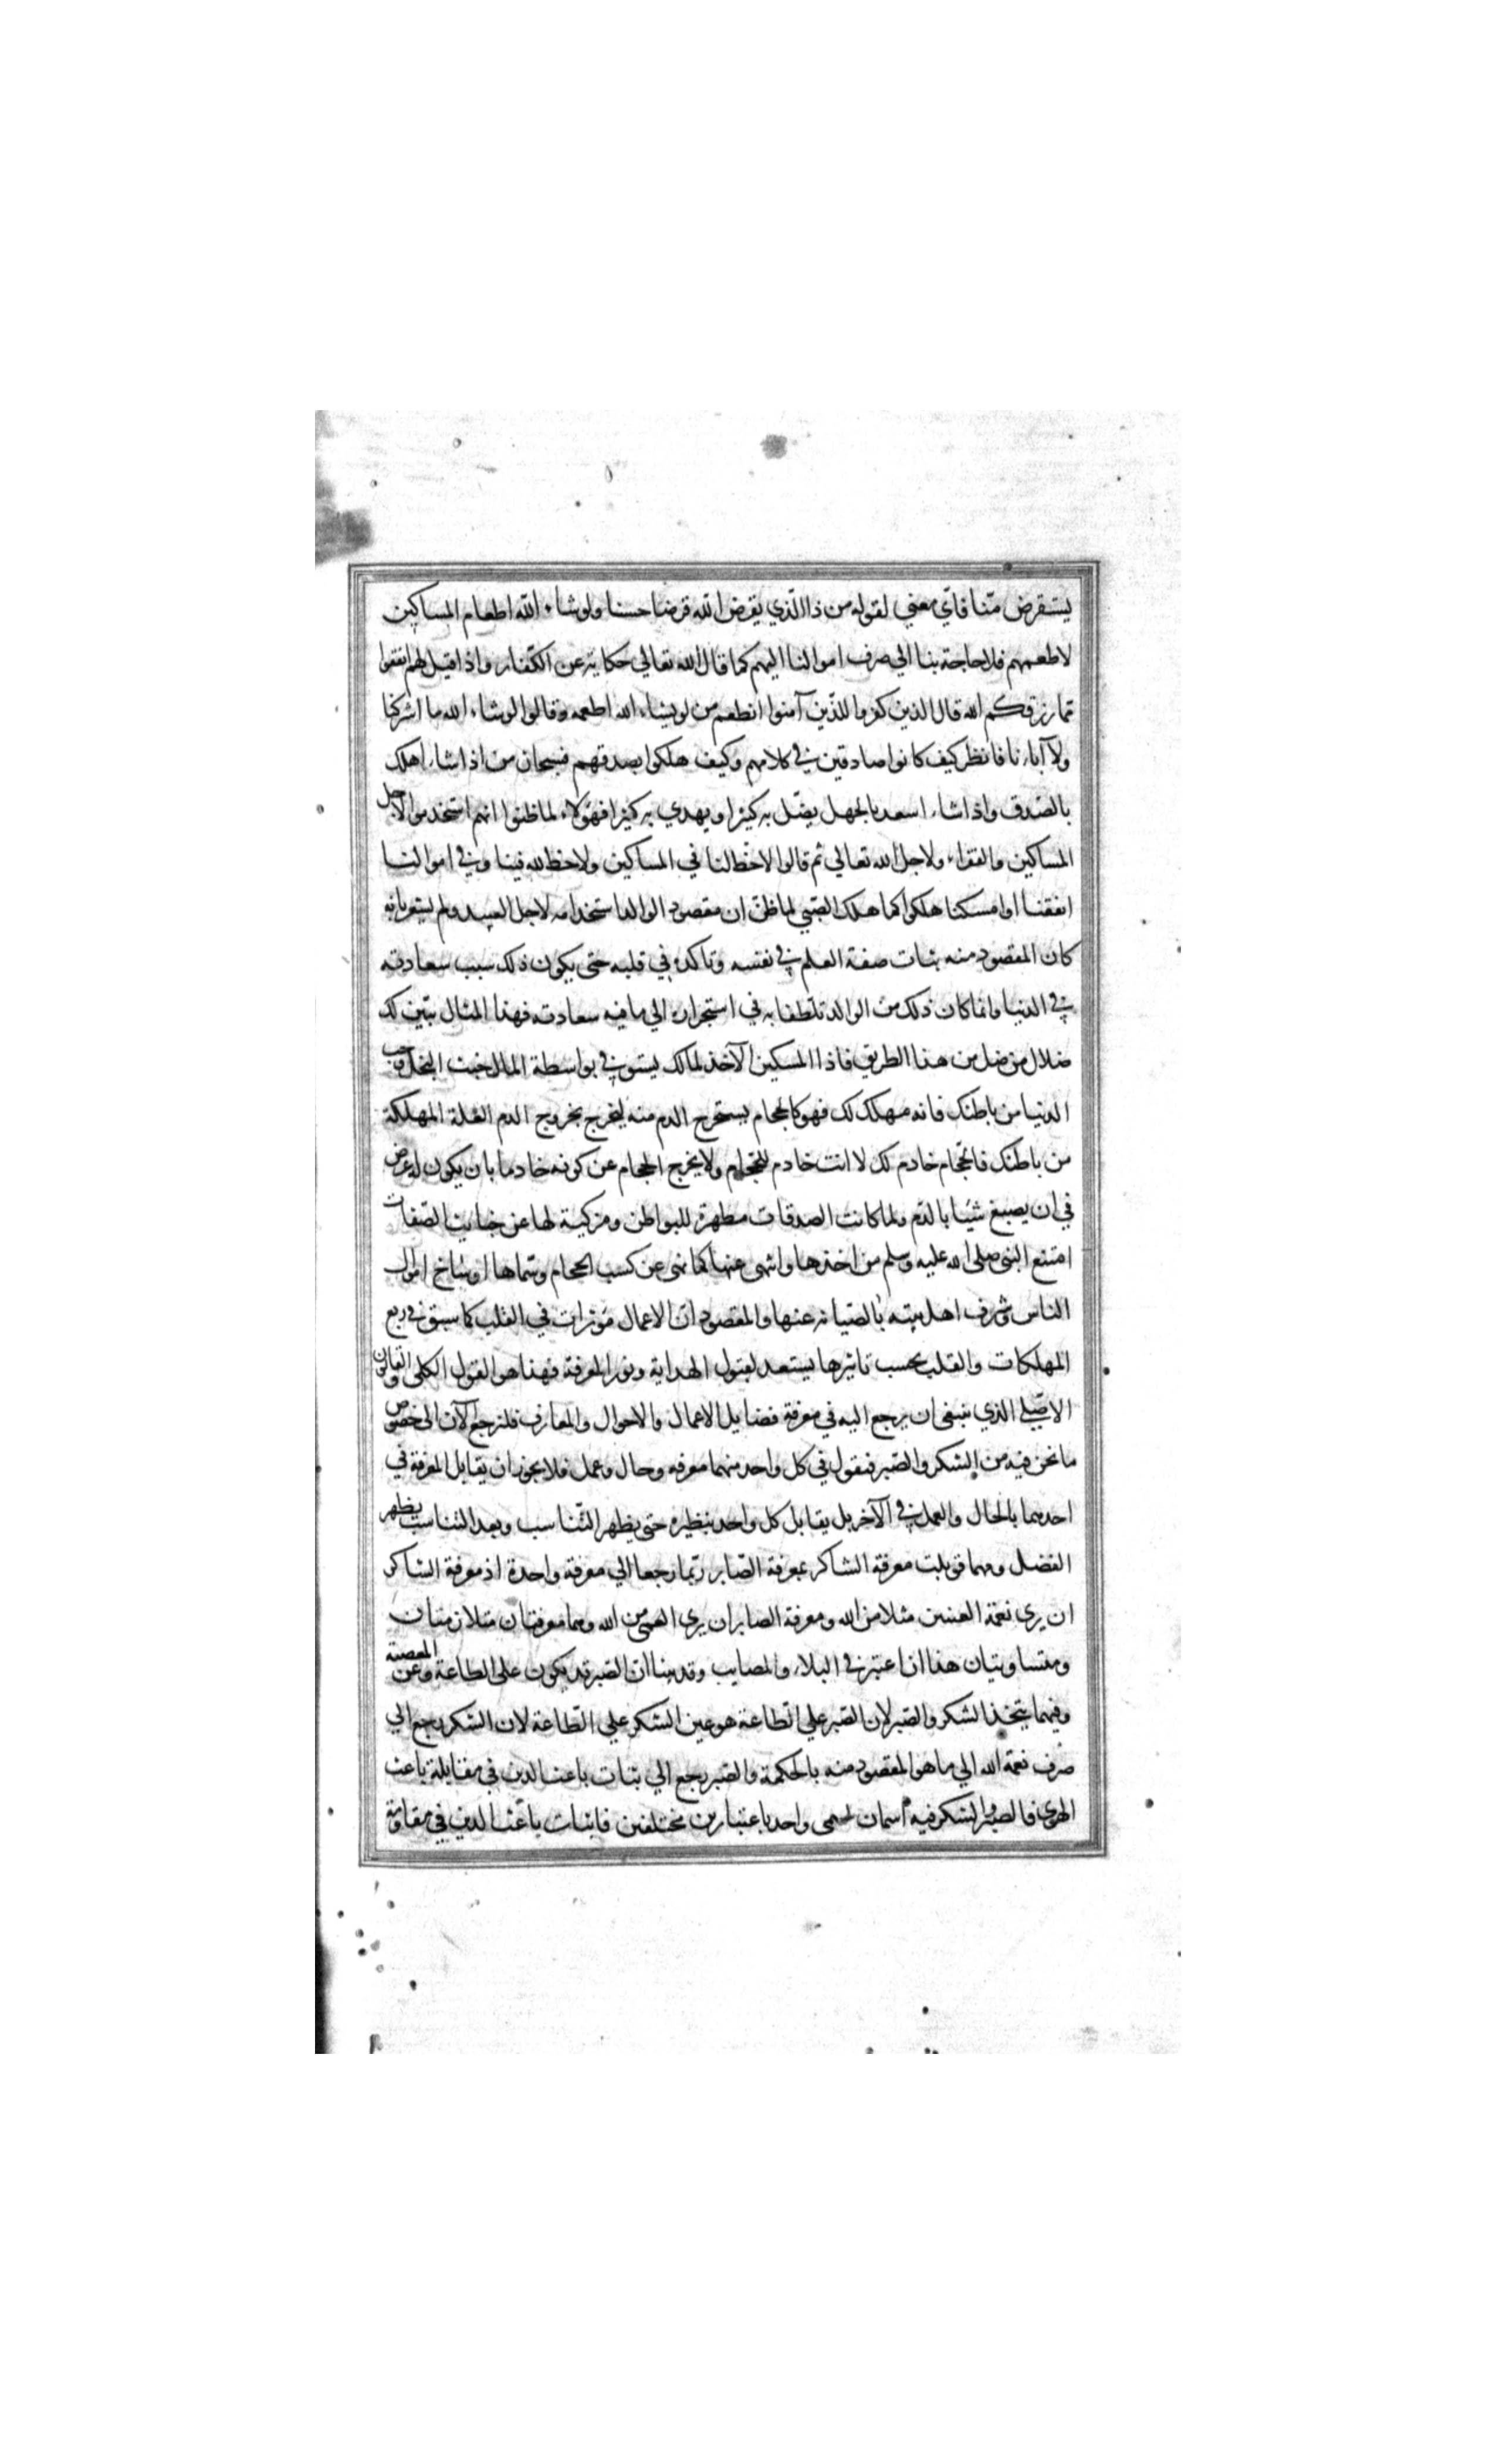 يستقرض منا فاي معني لقوله من ذا الذي يقرض الله قرضا حسنا ولو شاء الله اطعام المساكين
لاطعمهم فلا حاجة بنا الي صرف اموالنا اليهم كما قال الله تعالي حكاية عن الكفار واذا قيل لهم انفقوا
مما رزقكم الله قال الذين كفروا للذين آمنوا انطعم من لو يشاء الله اطعمه وقالوا لو شاء الله ما اشركنا
ولا آباؤنا فانظر كيف كانوا صادقين في كلامهم وكيف هلكوا بصدقهم فسبحان من اذا شاء اهلك
بالصدق واذا شاء اسعد بالجهل يضل به كثيرا ويهدي به كثيرا فهؤلاء لما ظنوا انهم استخدموا لاجل
المساكين والفقراء ولاجل الله تعالي ثم قالوا لا حظ لنا في المساكين ولا حظ لله فينا وفي اموالنا
انفقنا او امسكنا هلكوا كما هلك الصبي لما ظن ان مقصود الوالد استخدامه لاجل العبيد ولم يشعر بانه
كان المقصود منه ثبات صفة العلم في نفسه وتاكده في قلبه حتى يكون ذلك سبب سعادته
في الدنيا وانما كان ذلك من الوالد تلطفا به في استجراره الي ما فيه سعادته فهذا المثال يبين لك
ضلال من ضل من هذا الطريق فاذا المسكين الآخذ لمالك يستوفي بواسطة المال خبث البخل وحب
الدنيا من باطنك فانه مهلك لك فهو كالحجام يستخرج الدم منه ليخرج بخروج الدم العلة المهلكة
من باطنك فالحجام خادم لك لا انت خادم للحجام ولا يخرج الحجام عن كونه خادما بان يكون له غرض
في ان يصبغ شيئا بالدم ولما كانت الصدقات مطهرة للبواطن ومزكية لها عن خبايث الصفات
امتنع النبي صلى الله عليه وسلم من اخذها وانتهى عنها كما نهى عن كسب الحجام وسماها اوساخ اموال
الناس وشرف اهل بيته بالصيانة عنها والمقصود ان الاعمال مؤثرات في القلب كما سبق في ربع
المهلكات والقلب بحسب تاثيرها يستعد لقبول الهداية ونور المعرفة فهذا هو القول الكلى والقانون
الاصلي الذي ينبغي ان يرجع اليه في معرفة فضايل الاعمال والاحوال والمعارف فلنرجع الآن الى خصوص
ما نحن فيه من الشكر والصبر فنقول في كل واحد منهما معرفة وحال وعمل فلا يجوز ان يقابل المعرفة في
احدهما بالحال والعمل في الآخر بل يقابل كل واحد بنظيره حتى يظهر التناسب وبعد التناسب يظهر
الفضل ومهما قوبلت معرفة الشاكر بمعرفة الصابر ربما رجعا الي معرفة واحدة اذ معرفة الشاكر
ان يرى نعمة العينين مثلا من الله ومعرفة الصابر ان يرى العمى من الله وهما معرفتان متلازمتان
ومتساويتان هذا اذا اعتبر في البلاء والمصايب وقد بينا ان الصبر قد يكون على الطاعة وعن المعصية
وفيهما يتحد الشكر والصبر لان الصبر علي الطاعة هو عين الشكر علي الطاعة لان الشكر يرجع الي
صرف نعمة الله الي ما هو المقصود منه بالحكمة والصبر يرجع الي ثبات باعث الدين في مقابلة باعث
الهوى فالصبر والشكر فيه اسمان لمسمى واحد باعتبارين مختلفين فاثبات باعث الدين في مقاومة